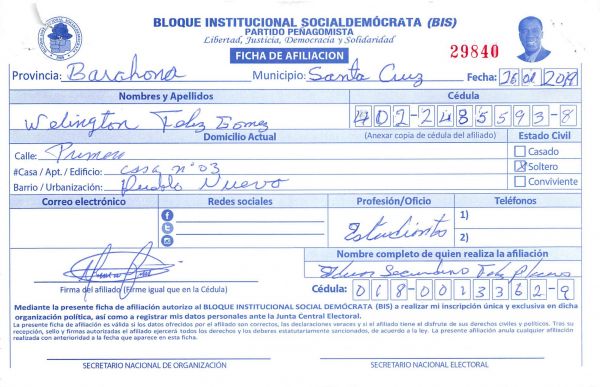 BLOQUE INSTITUCIONAL SOCIALDEMÓCRATA (BIS)
PARTIDO PEÑAGOMISTA
Libertad, Justicia, Democracia y Solidaridad
FICHA DE AFILIACION
29840
Provincia: Barahona Municipio: Santa Cruz Fecha:
Nombres y Apellidos Cédula
Welington Feliz Gomez 402-2485593-8
Domicilio Actual (Anexar copia de cédula del afiliado) Estado Civil
Calle: Primera Casado
#Casa / Apt. / Edificio: casa nº 03 Soltero
Barrio / Urbanización: Pueblo Nuevo Conviviente
Correo electrónico Redes sociales Profesión/Oficio Teléfonos
Estudiante 1)
2)
Nombre completo de quien realiza la afiliación
Secundino Feliz
Firma del afiliado (Firme igual que en la Cédula) Cédula: 018-0013362-9
Mediante la presente ficha de afiliación autorizo al BLOQUE INSTITUCIONAL SOCIAL DEMÓCRATA (BIS) a realizar mi inscripción única y exclusiva en dicha
organización política, así como a registrar mis datos personales ante la Junta Central Electoral.
La presente ficha de afiliación es válida si los datos ofrecidos por el afiliado son correctos, las declaraciones veraces y si el afiliado tiene el disfrute de sus derechos civiles y políticos. Tras su
recepción, sello y firmas autorizadas el afiliado ejercerá todos los derechos y los deberes estatutariamente sancionados, de acuerdo a la ley. La presente afiliación anula cualquier afiliación
realizada con anterioridad a la fecha que aparece en esta ficha.
SECRETARIO NACIONAL DE ORGANIZACIÓN SECRETARIO NACIONAL ELECTORAL